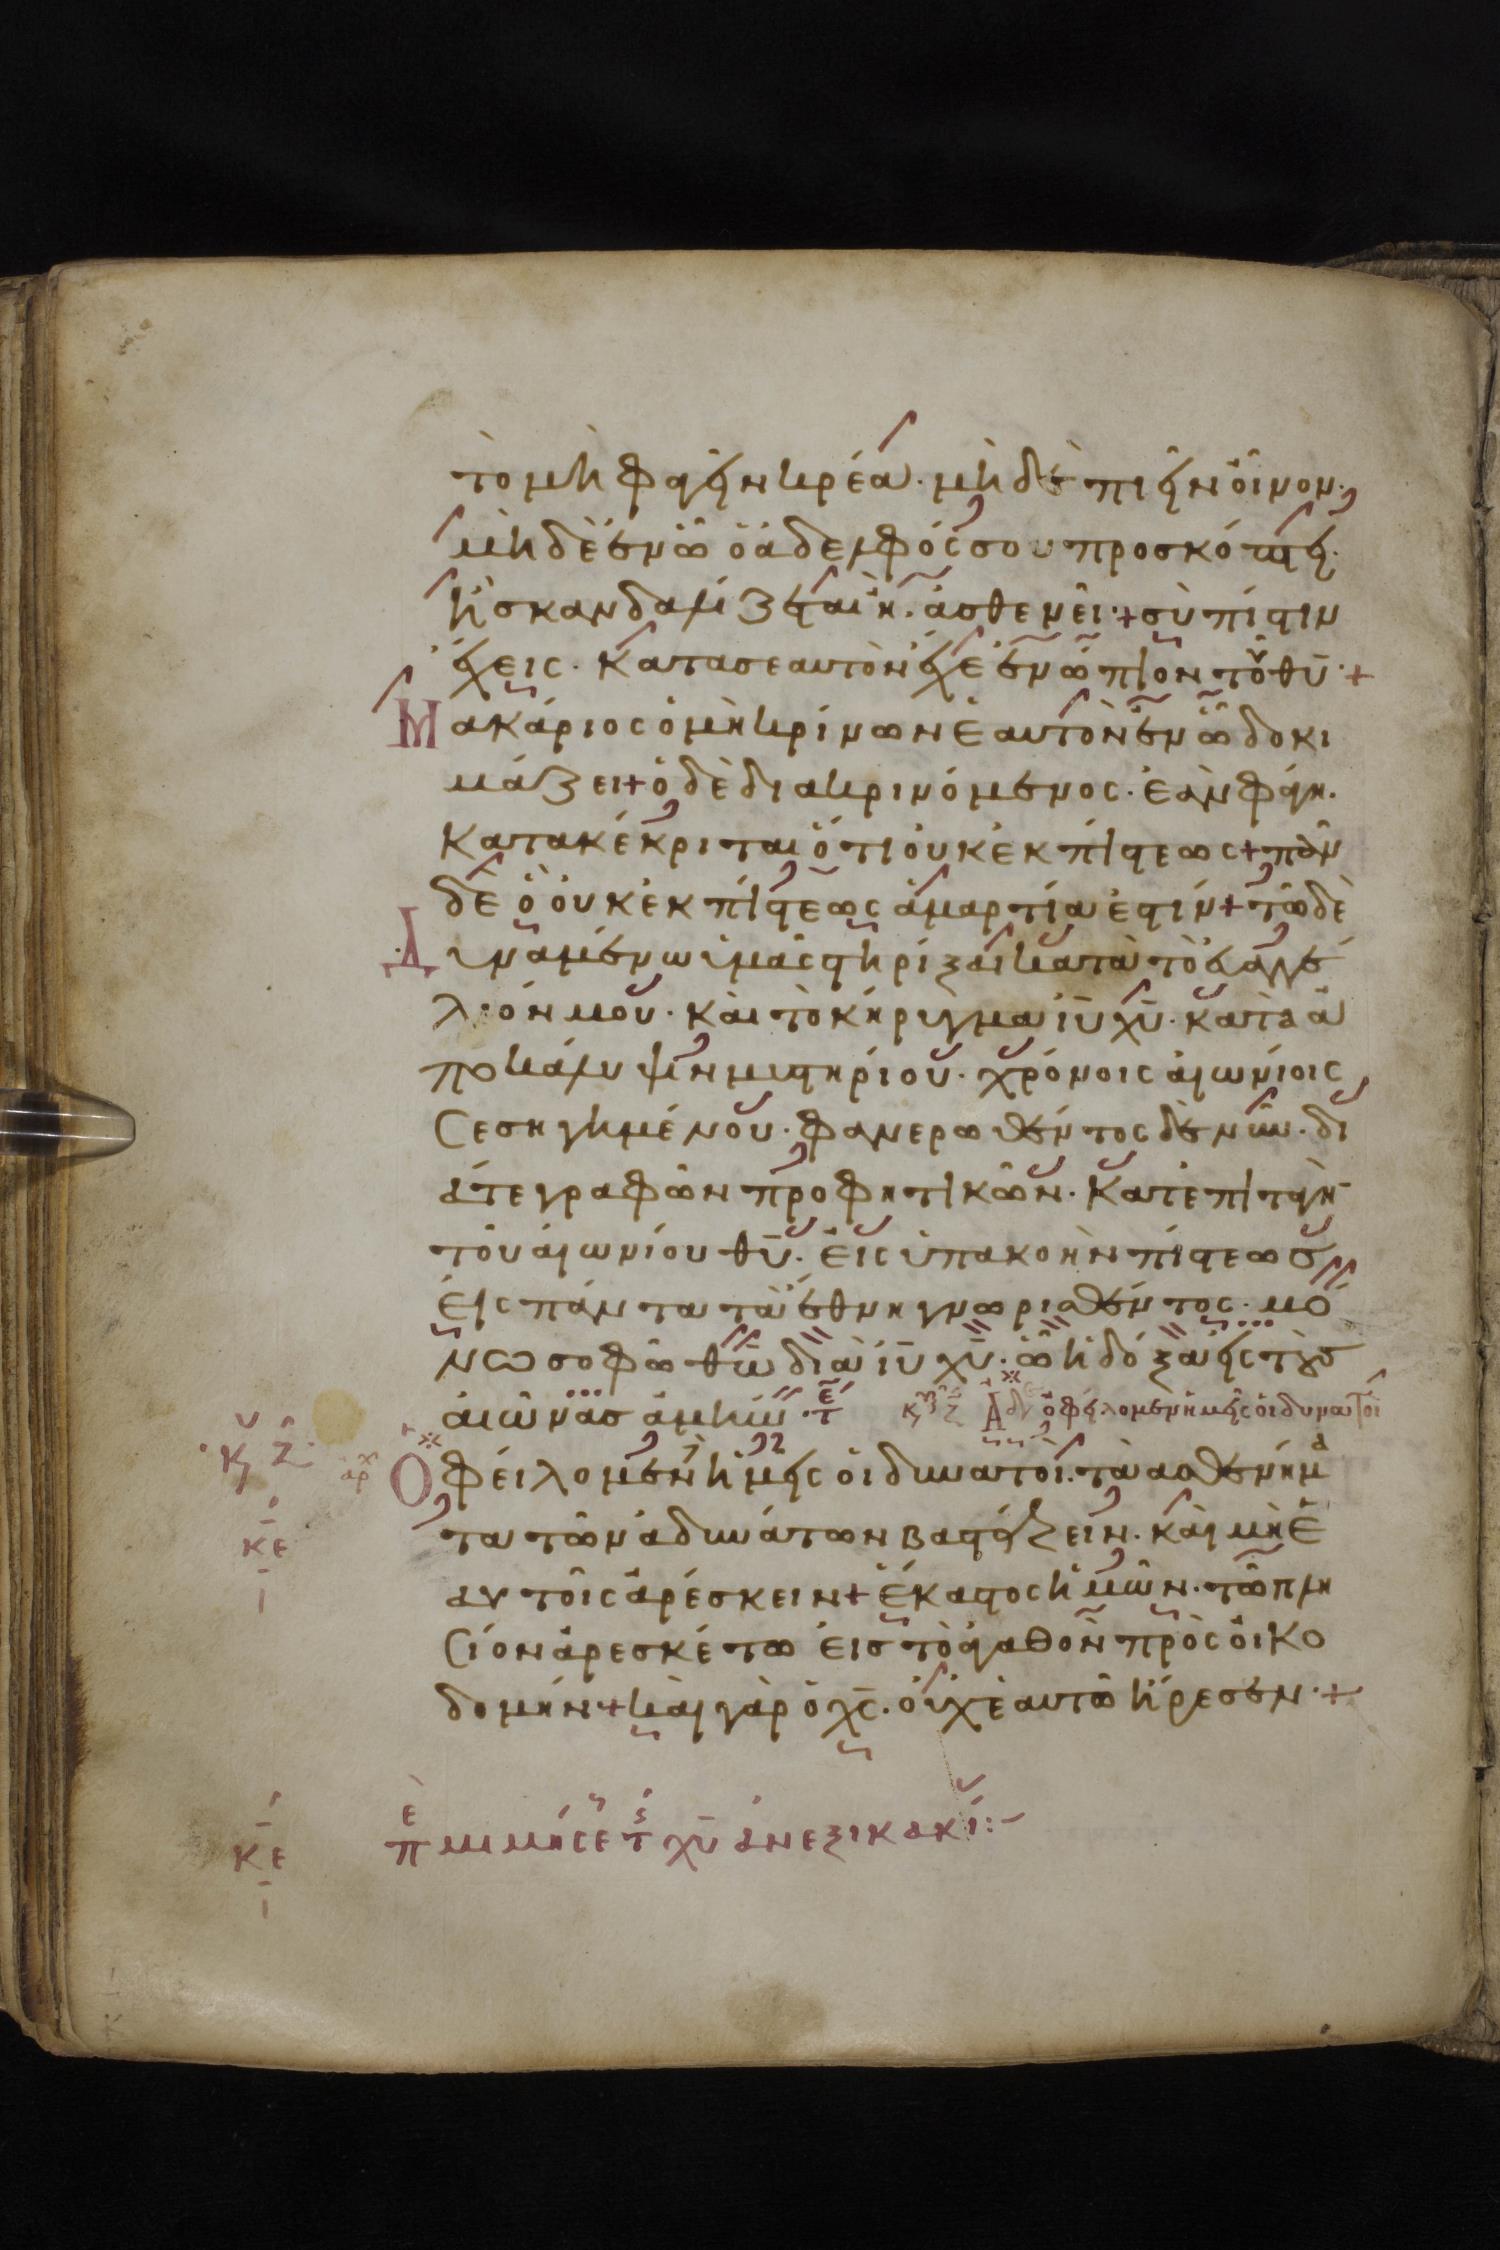 τὸ μὴ φαγῆν κρέα· μὴ δὲ πιῆν οἶνον·
μὴ δὲ ἐν ᾧ ὁ ἀδελφός σου προσκόπτει·
ἢ σκανδαλίζεται ἢ ἀσθενεῖ·+ σὺ πίστιν
ἔχεις· κατὰ σεαυτὸν ἔχε ἐνώπιον τοῦ θῡ·+
Μακάριος ὁ μὴ κρίνων ἑαυτὸν ἐν ᾧ δοκι
μάζει+ ὁ δὲ διακρινόμενος· ἐὰν φάγη·
κατακέκριται ὅτι οὐκ ἐκ πίστεως+ πᾶν
δὲ ὃ οὐκ ἐκ πίστεως ἁμαρτία ἐστίν+ τῶ δὲ
Δυναμένω ὑμᾶς στηρίξαι κατὰ τὸ εὐαγγέ
λιόν μου· καὶ τὸ κήρυγμα ῑῡ χῡ· κατὰ ἀ
ποκάλυψιν μυστηρίου· χρόνοις αἰωνίοις
σεσηγημένου· φανερωθέντος δὲ νῦν· δι
άτε γραφῶν προφητικῶν· κατεπιταγὴν
τοῦ αἰωνίου θῡ· εἰς ὑπακοὴν πίστεωσ
εἰς πάντα τὰ ἔθνη γνωρισθέντος· μό
νω σοφῶ θῶ διὰ ῑῡ χῡ· ᾧ ἡ δόξα εἰς τοὺσ
αἰῶνασ ἀμήν· τε κυ ζ Ἀδ ὀφείλομεν ἡμεῖς οἱ δυνατοὶ
κυ ζ ἀρχ Ὀφείλομεν ἡμεῖς οἱ δυνατοί· τὰ ασθενήμα
τα τῶν ἀδυνάτων βαστάζειν· καὶ μὴ ἑ
κε ι
αυτοῖς ἀρέσκειν+ ἕκαστος ἡμῶν· τῶ πλη
σίον ἀρεσκέτω εἰς τὸ ἀγαθὸν πρὸς οἰκο
δομήν+ καὶ γὰρ ὁ χς̄· οὐχ ἑαυτῶ ἤρεσεν·+
κε ι πε μιμήσε τ χῡ ἀνεξικακί:-